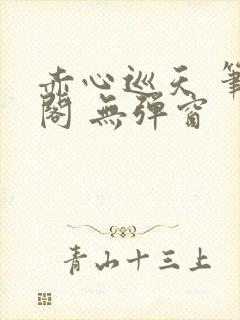 赤心巡天 筆
閣 無彈窗
青山十三上